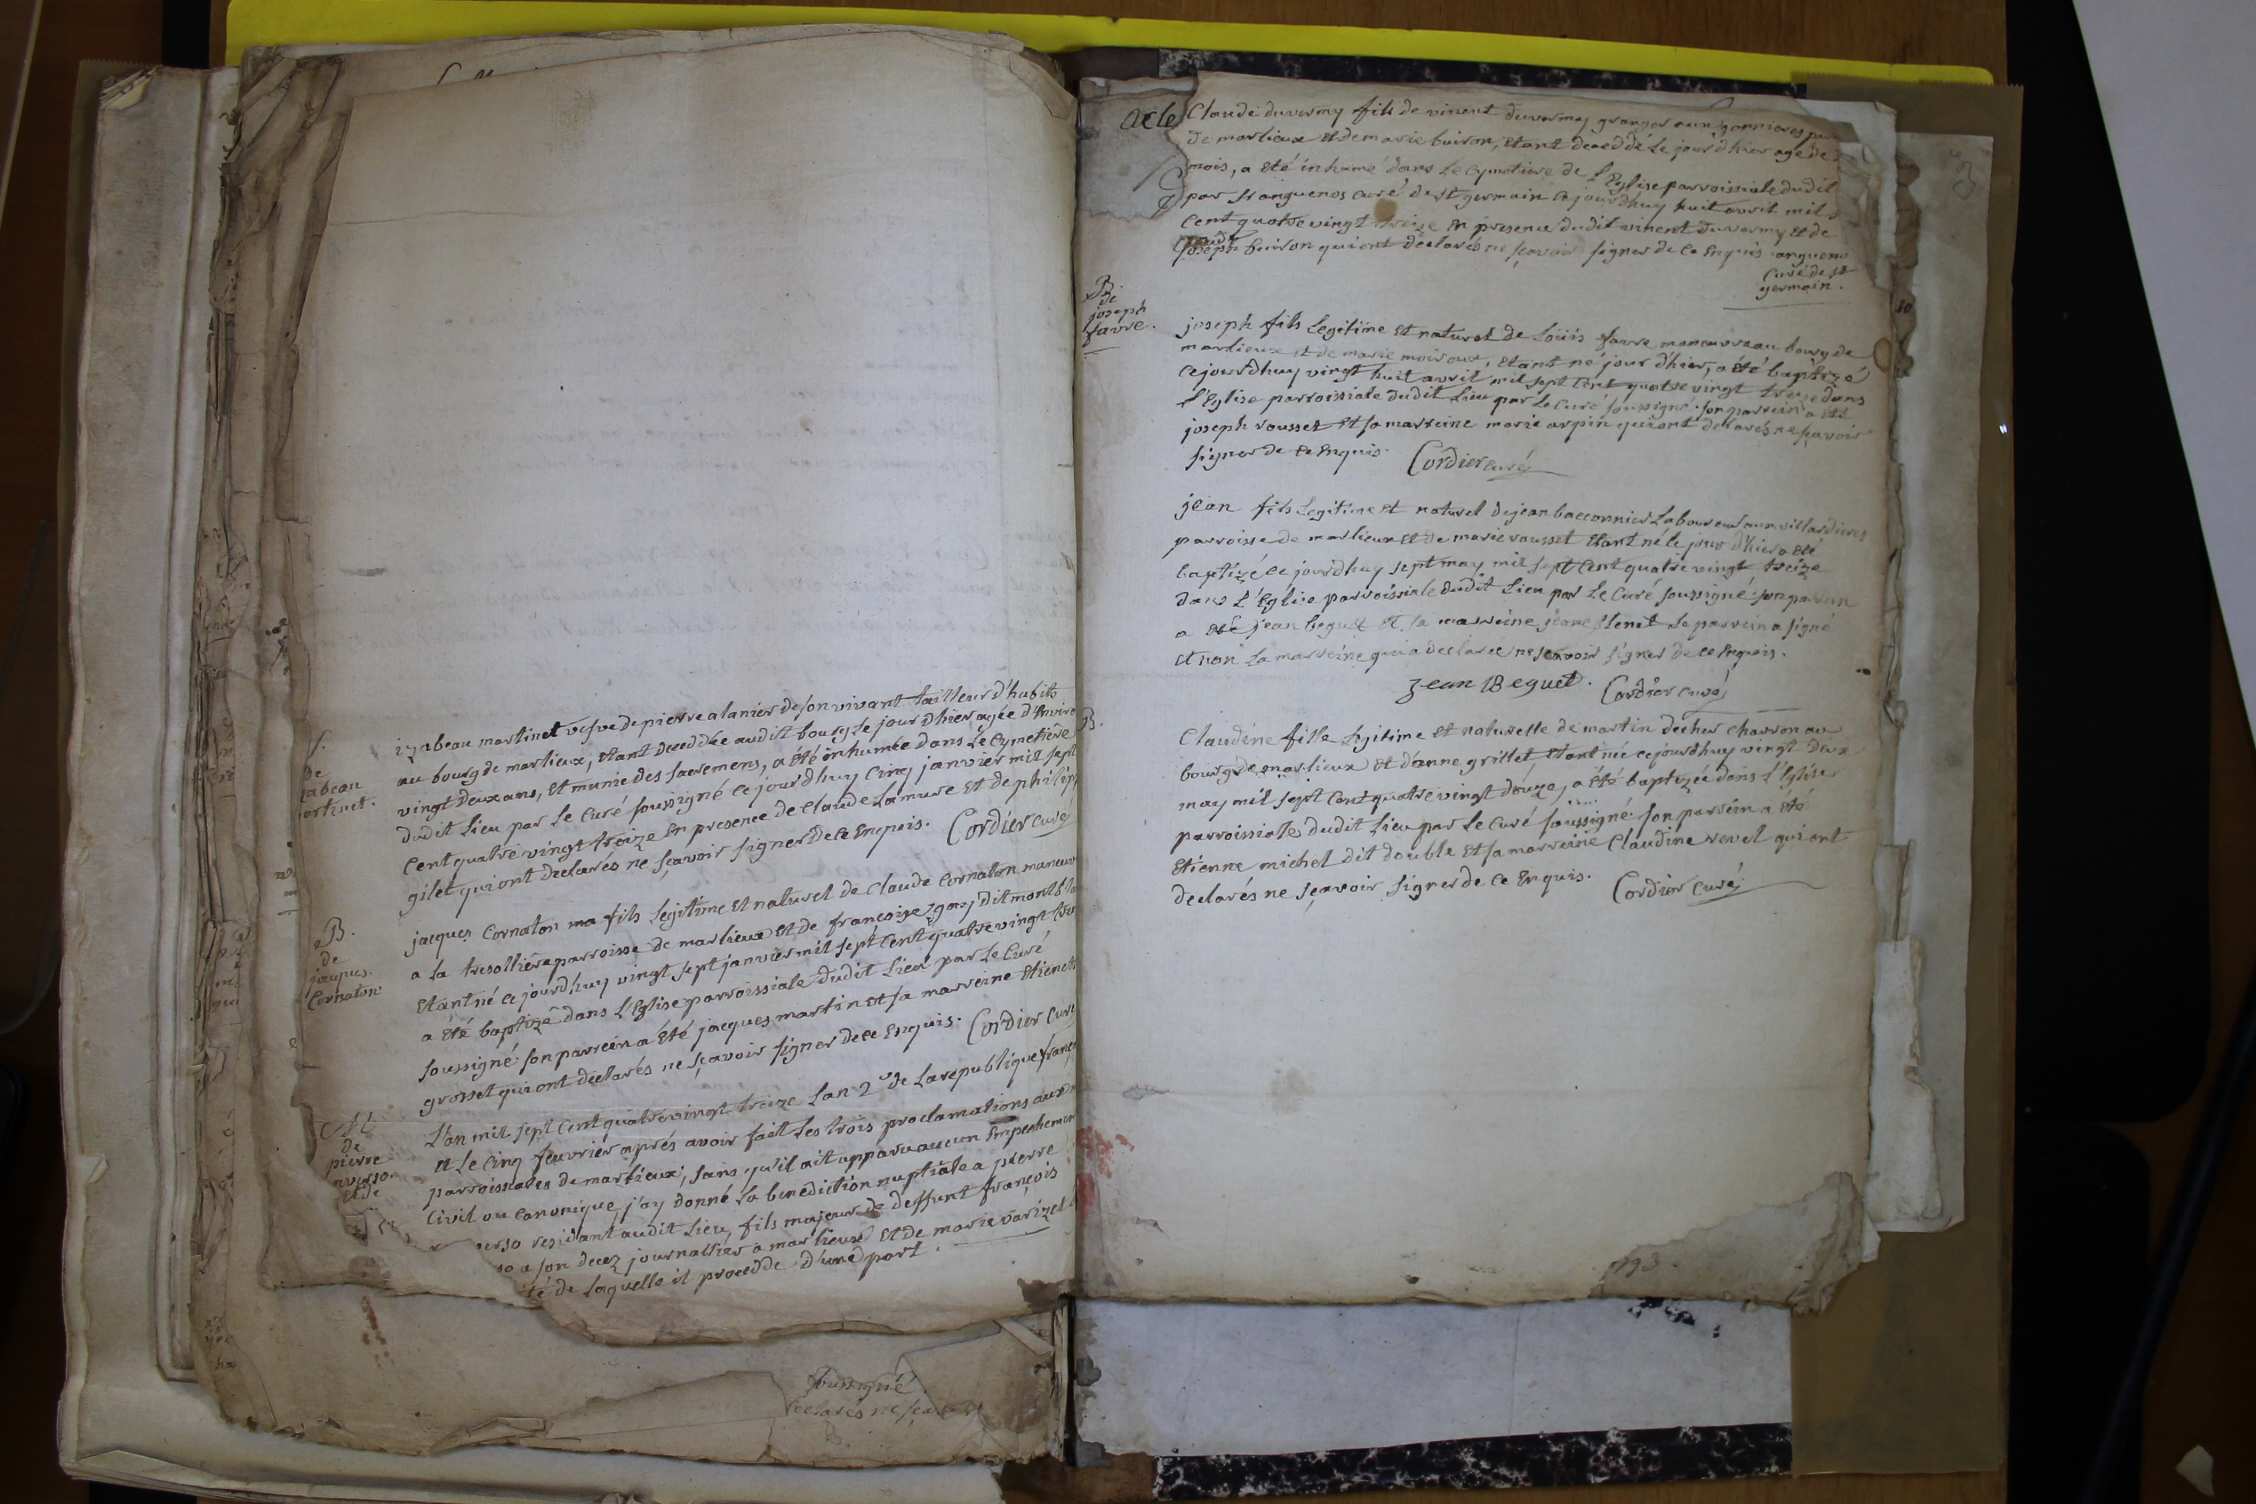 S.
de
izabeau
martinet.
izabeau martinet vefve de pierre alanier de son vivant tailleur d'habits
au bourg de marlieux, etant deceddée audit bourg le jour d'hier agée d'enviro
vingt deux ans, et munie des sacremens, a été inhumée dans le cymetiere
dudit lieu par le curé soussigné ce jourd'huy cinq janvier mil sept
cent quatre vingt treize en presence de claude lamure et de philip
gilet qui ont declarés ne sçavoir signer de ce enquis. Cordier curé
B.
de
jacques
Cornaton
jacques Cornaton fils legitime et naturel de claude cornaton maneuv
a la tresolliere parroisse de marlieux et de françoise goy dit montbl
etant né ce jourd'huy vingt sept janvier mil sept cent quatre vingt tre
a été baptizé dans l'Eglise parroissiale dudit lieu par le curé
soussigné son parrein a été jacques martin et sa marreine etienet
grosset qui ont declarés ne sçavoir signer de ce enquis. Cordier curé
M
de
pierre
et de
L'an mil sept cent quatre vingt treize l'an 2e de la republique franç
et le cinq feuvrier après avoir fait les trois proclamations aux
parroissiales de marlieux, sans qu'il ait apparu aucun empechemen
civil ou canonique, j'ay donné la benediction nuptiale a pierre
verso residant audit lieu, fils majeur de deffunt françois
so a son decez journallier a marlieux et de marie varizel
té de laquelle il procedde d'une part.
soussigné
declarés ne sca
acle
Claude duvermy fils de vinent duvermy granger aux gonnieres par
de marlieux et de marie buiron, etant deceddé le jour d'hier agé de
mois, a été inhumé dans le cymetiere de l'Eglise parroissiale dudit
par franguenos curé de st germain ce jourd'huy huit avril mil
cent quatre vingt treize en presence dudit vinent duvermy et de
joseph buiron qui ont declarés ne sçavoir signer de ce enquis
curé de st
germain.
B.
de
joseph
favre.
joseph fils legitime et naturel de Loüis favre maneuvre au bourg de
marlieux et de marie moiroux, etant né jour d'hier, a été baptizé
ce jourd'huy vingt huit avril mil sept cent quatre vingt treize dans
l'Eglise parroissiale dudit lieu par le curé soussigné son parrein a été
joseph rousset et sa marreine marie arpin qui ont declarés ne sçavoir
signer de ce enquis. Cordier curé
jean fils legitime et naturel de jean baconnier laboureur aux villardieres
parroisse de marlieux et de marie rousset etant né le jour d'hier a été
baptizé ce jourd'huy sept may mil sept cent quatre vingt treize
dans l'Eglise parroissiale dudit lieu par le curé soussigné son parrein
a été jean beguet et sa marreine jeane le parrein a signé
et non la marreine qui a declaré ne sçavoir signer de ce enquis.
Jean Beguet. Cordier curé
B.
Claudine fille legitime et naturelle de martin decher charron au
bourg de marlieux et d'anne grillet, etant née ce jourd'huy vingt deux
may mil sept cent quatre vingt douze, a été baptizée dans l'Eglise
parroissiale dudit lieu par le curé soussigné son parrein a été
Etienne michel dit double et sa marreine Claudine revel qui ont
declarés ne sçavoir signer de ce enquis. Cordier curé
1793.